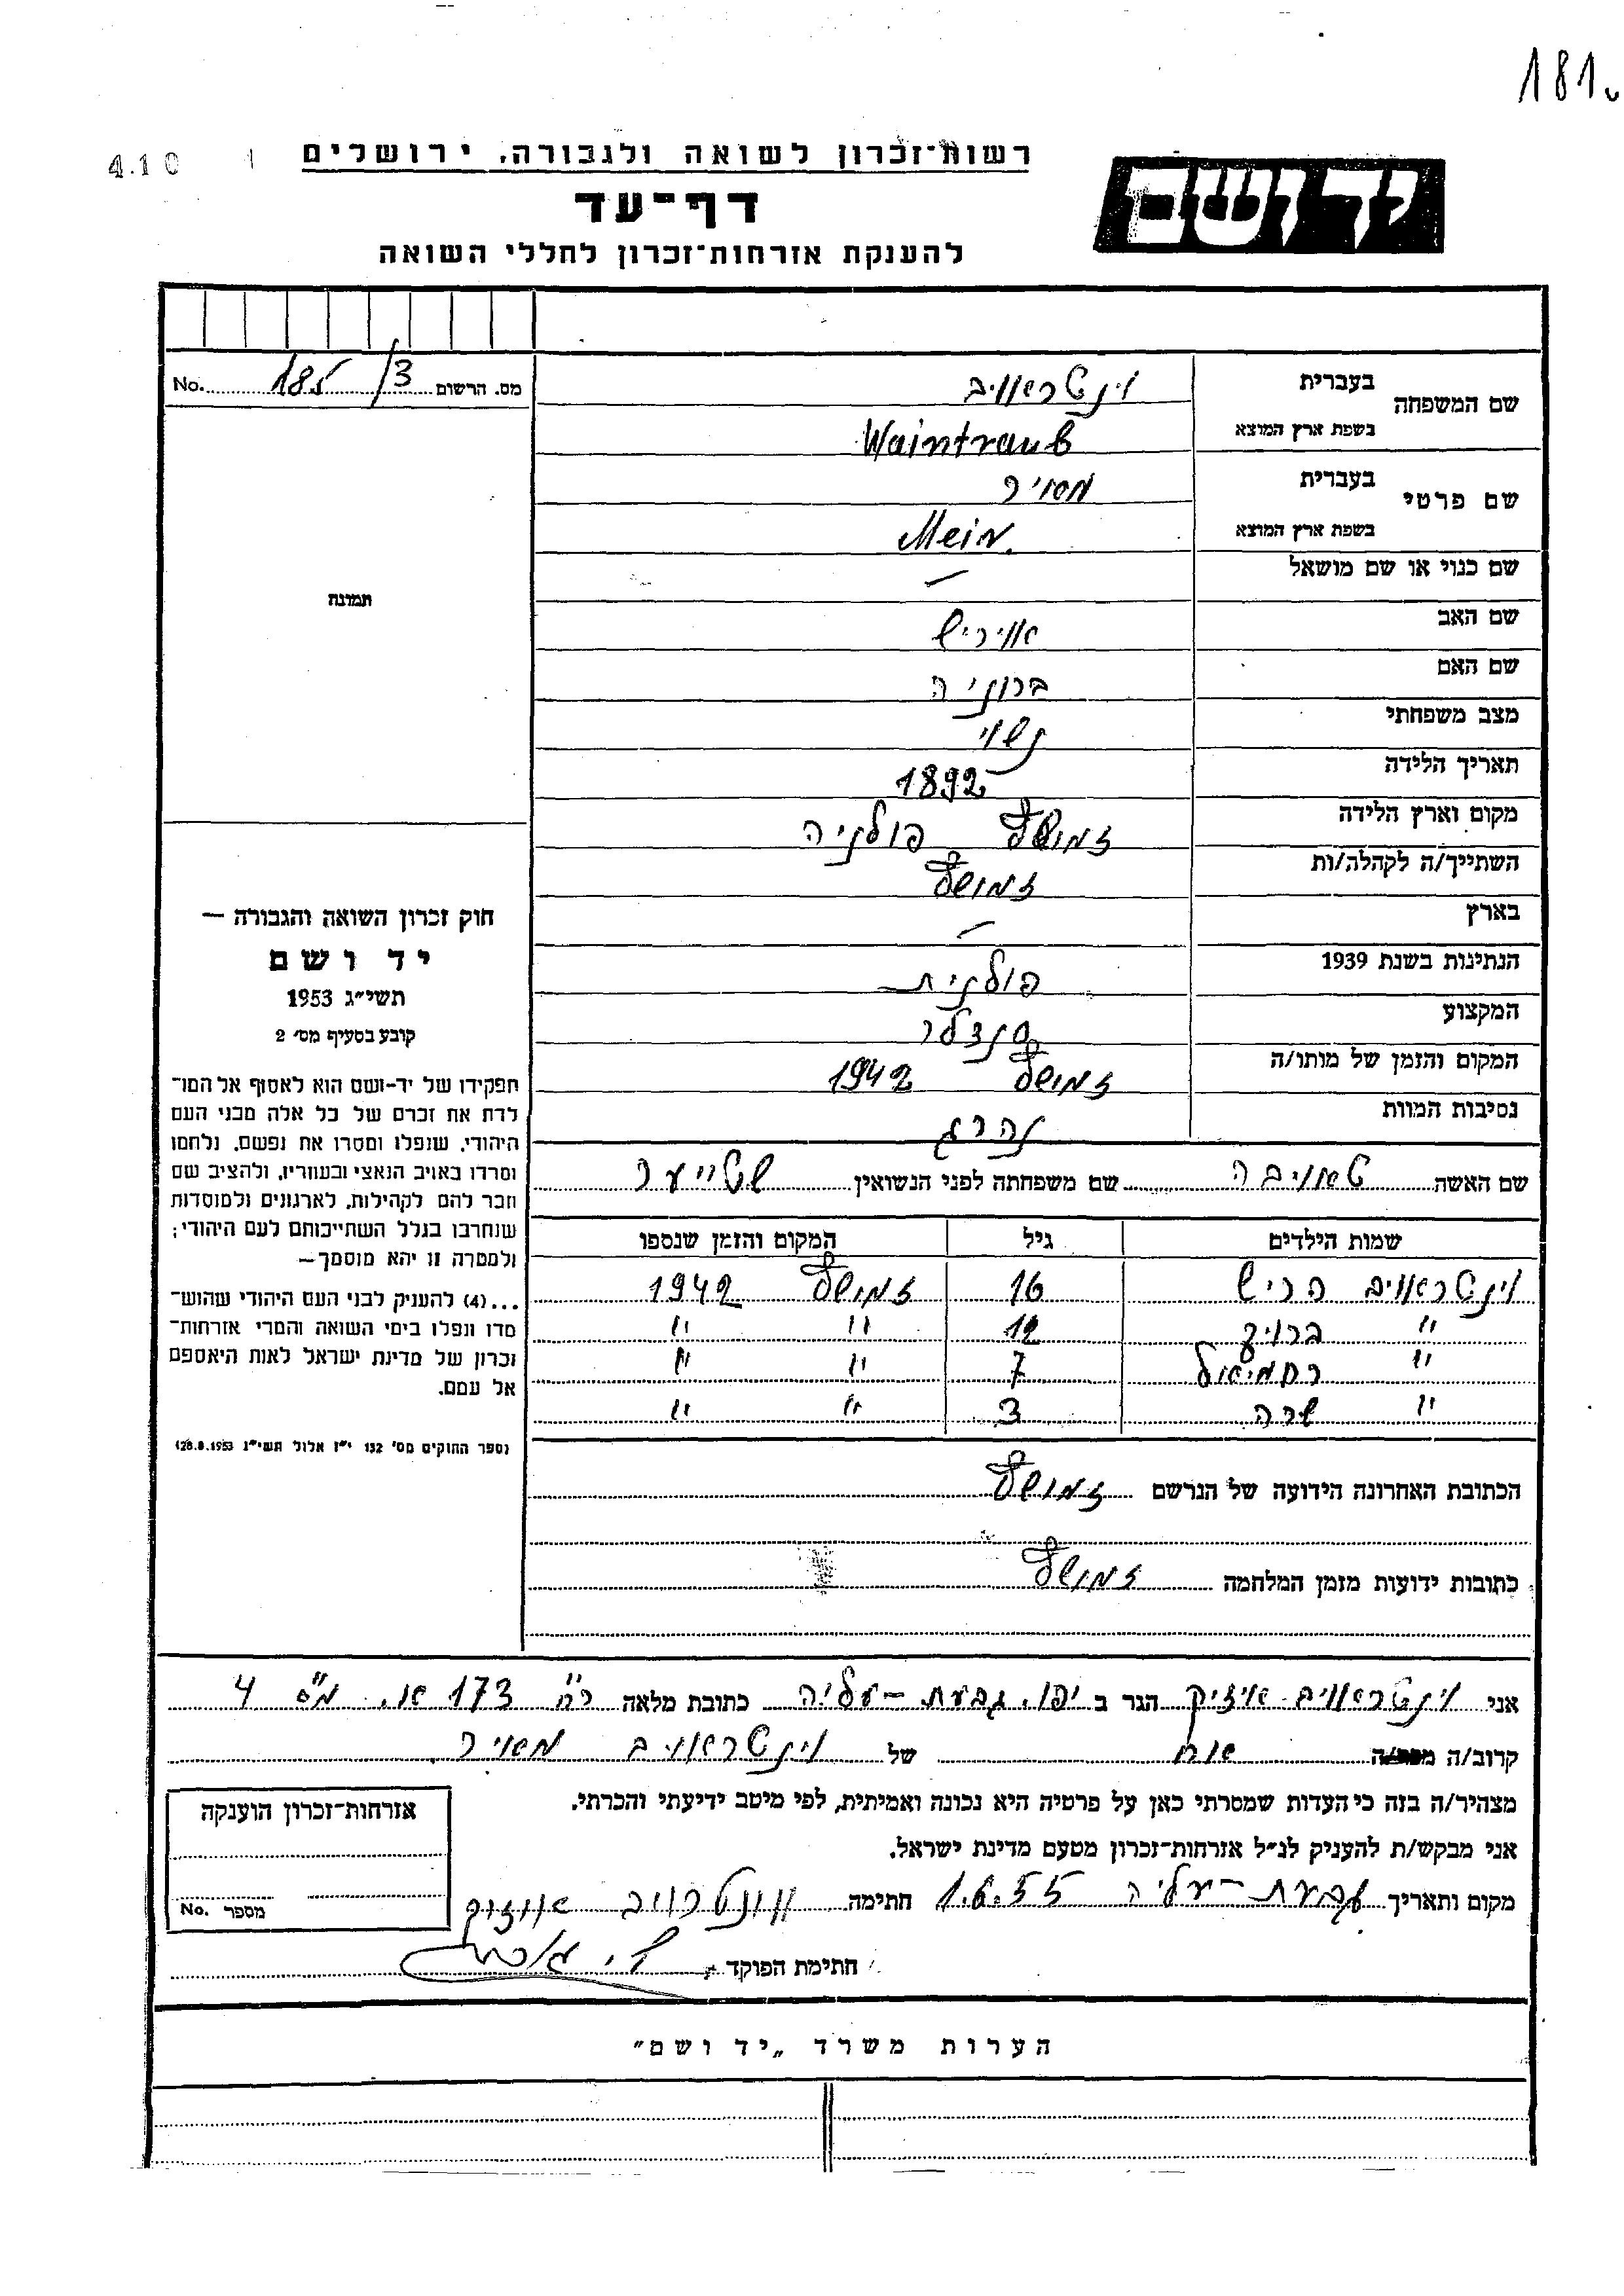 181
4.10 1
רשות־זכרון לשואה ולגבורה, ירושלים
יד ושם
דף־עד
להענקת אזרחות־זכרון לחללי השואה
מס. הרשום 185/3 No.
שם המשפחה בעברית וינטראויב
בשפת ארץ המוצא Waintraub
שם פרטי בעברית מאיר
בשפת ארץ המוצא Meir
שם כנוי או שם מושאל –
שם האב
שם האם ברוניה
מצב משפחתי נשוי
תאריך הלידה 1892
מקום וארץ הלידה זמושץ פולניה
השתייך/ה לקהלה/ות זמושץ
בארץ –
הנתינות בשנת 1939 פולנית
המקצוע סנדלר
המקום והזמן של מותו/ה זמושץ 1942
נסיבות המוות נהרג
שם האשה טאויבה שם משפחתה לפני הנשואין שטייער
שמות הילדים גיל המקום והזמן שנספו
וינטראויב הריש 16 זמושץ 1942
" 12 " "
" רחמיאל 7 " "
" שרה 3 " "
הכתובת האחרונה הידועה של הנרשם זמושץ
כתובות ידועות מזמן המלחמה זמושץ
תמונה
חוק זכרון השואה והגבורה —
יד ושם
תשי״ג 1953
קובע בסעיף מס׳ 2
תפקידו של יד־ושם הוא לאסוף אל המו־
לדת את זכרם של כל אלה מבני העם
היהודי, שנפלו ומסרו את נפשם, נלחמו
ומרדו באויב הנאצי ובעוזריו, ולהציב שם
וזכר להם לקהילות, לארגונים ולמוסדות
שנחרבו בגלל השתייכותם לעם היהודי;
ולמטרה זו יהא מוסמך—
...(4) להעניק לבני העם היהודי שהוש־
מדו ונפלו בימי השואה והמרי אזרחות־
זכרון של מדינת ישראל לאות היאספם
אל עמם.
(ספר החוקים מס׳ 132 י״ז אלול תשי״ג 28.8.1953)
אני וינטראויב איזיק הגר ב יפו, גבעת-עליה כתובת מלאה רח" 173 או. מ"ס 4
קרוב/ה אח של וינטראויב מאיר
מצהיר/ה בזה כי העדות שמסרתי כאן על פרטיה היא נכונה ואמיתית, לפי מיטב ידיעתי והכרתי.
אני מבקש/ת להעניק לנ״ל אזרחות־זכרון מטעם מדינת ישראל.
מקום ותאריך גבעת-עליה 1.6.55 חתימה וונטרויב אייזיק
חתימת הפוקד
אזרחות־זכרון הוענקה
מספר No.
הערות משרד „יד ושם"